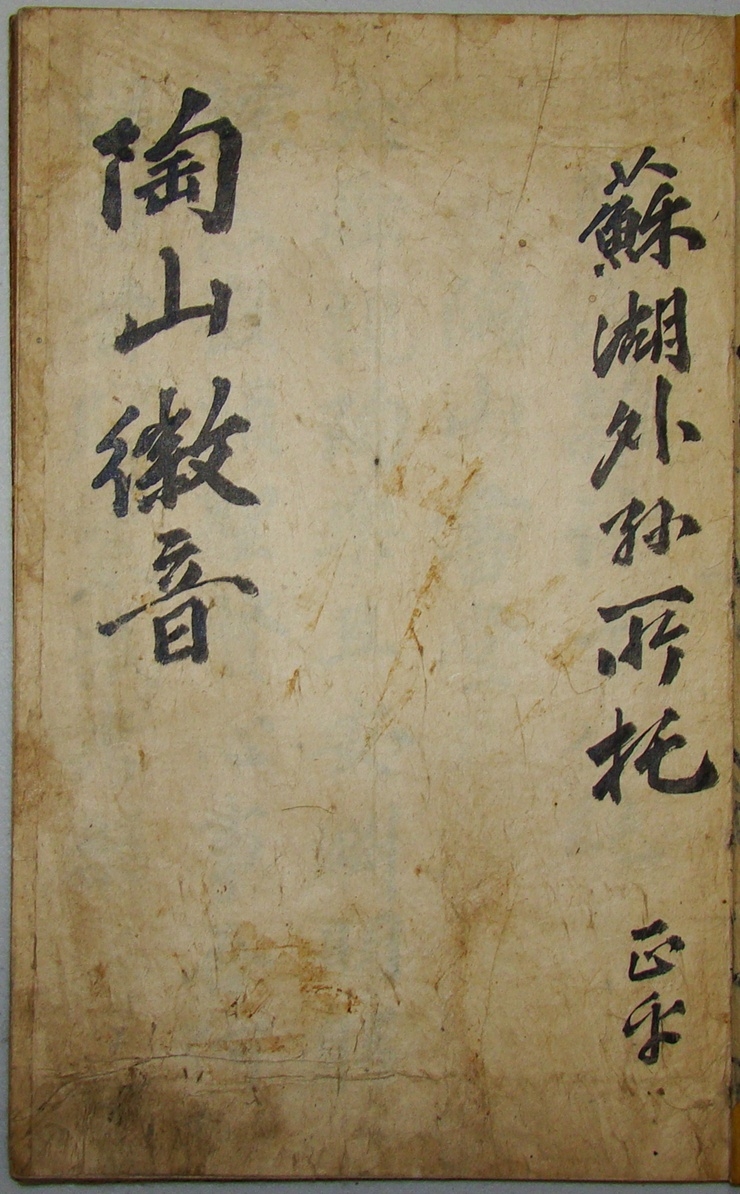 蘇湖外孫所托 正
陶山徽音